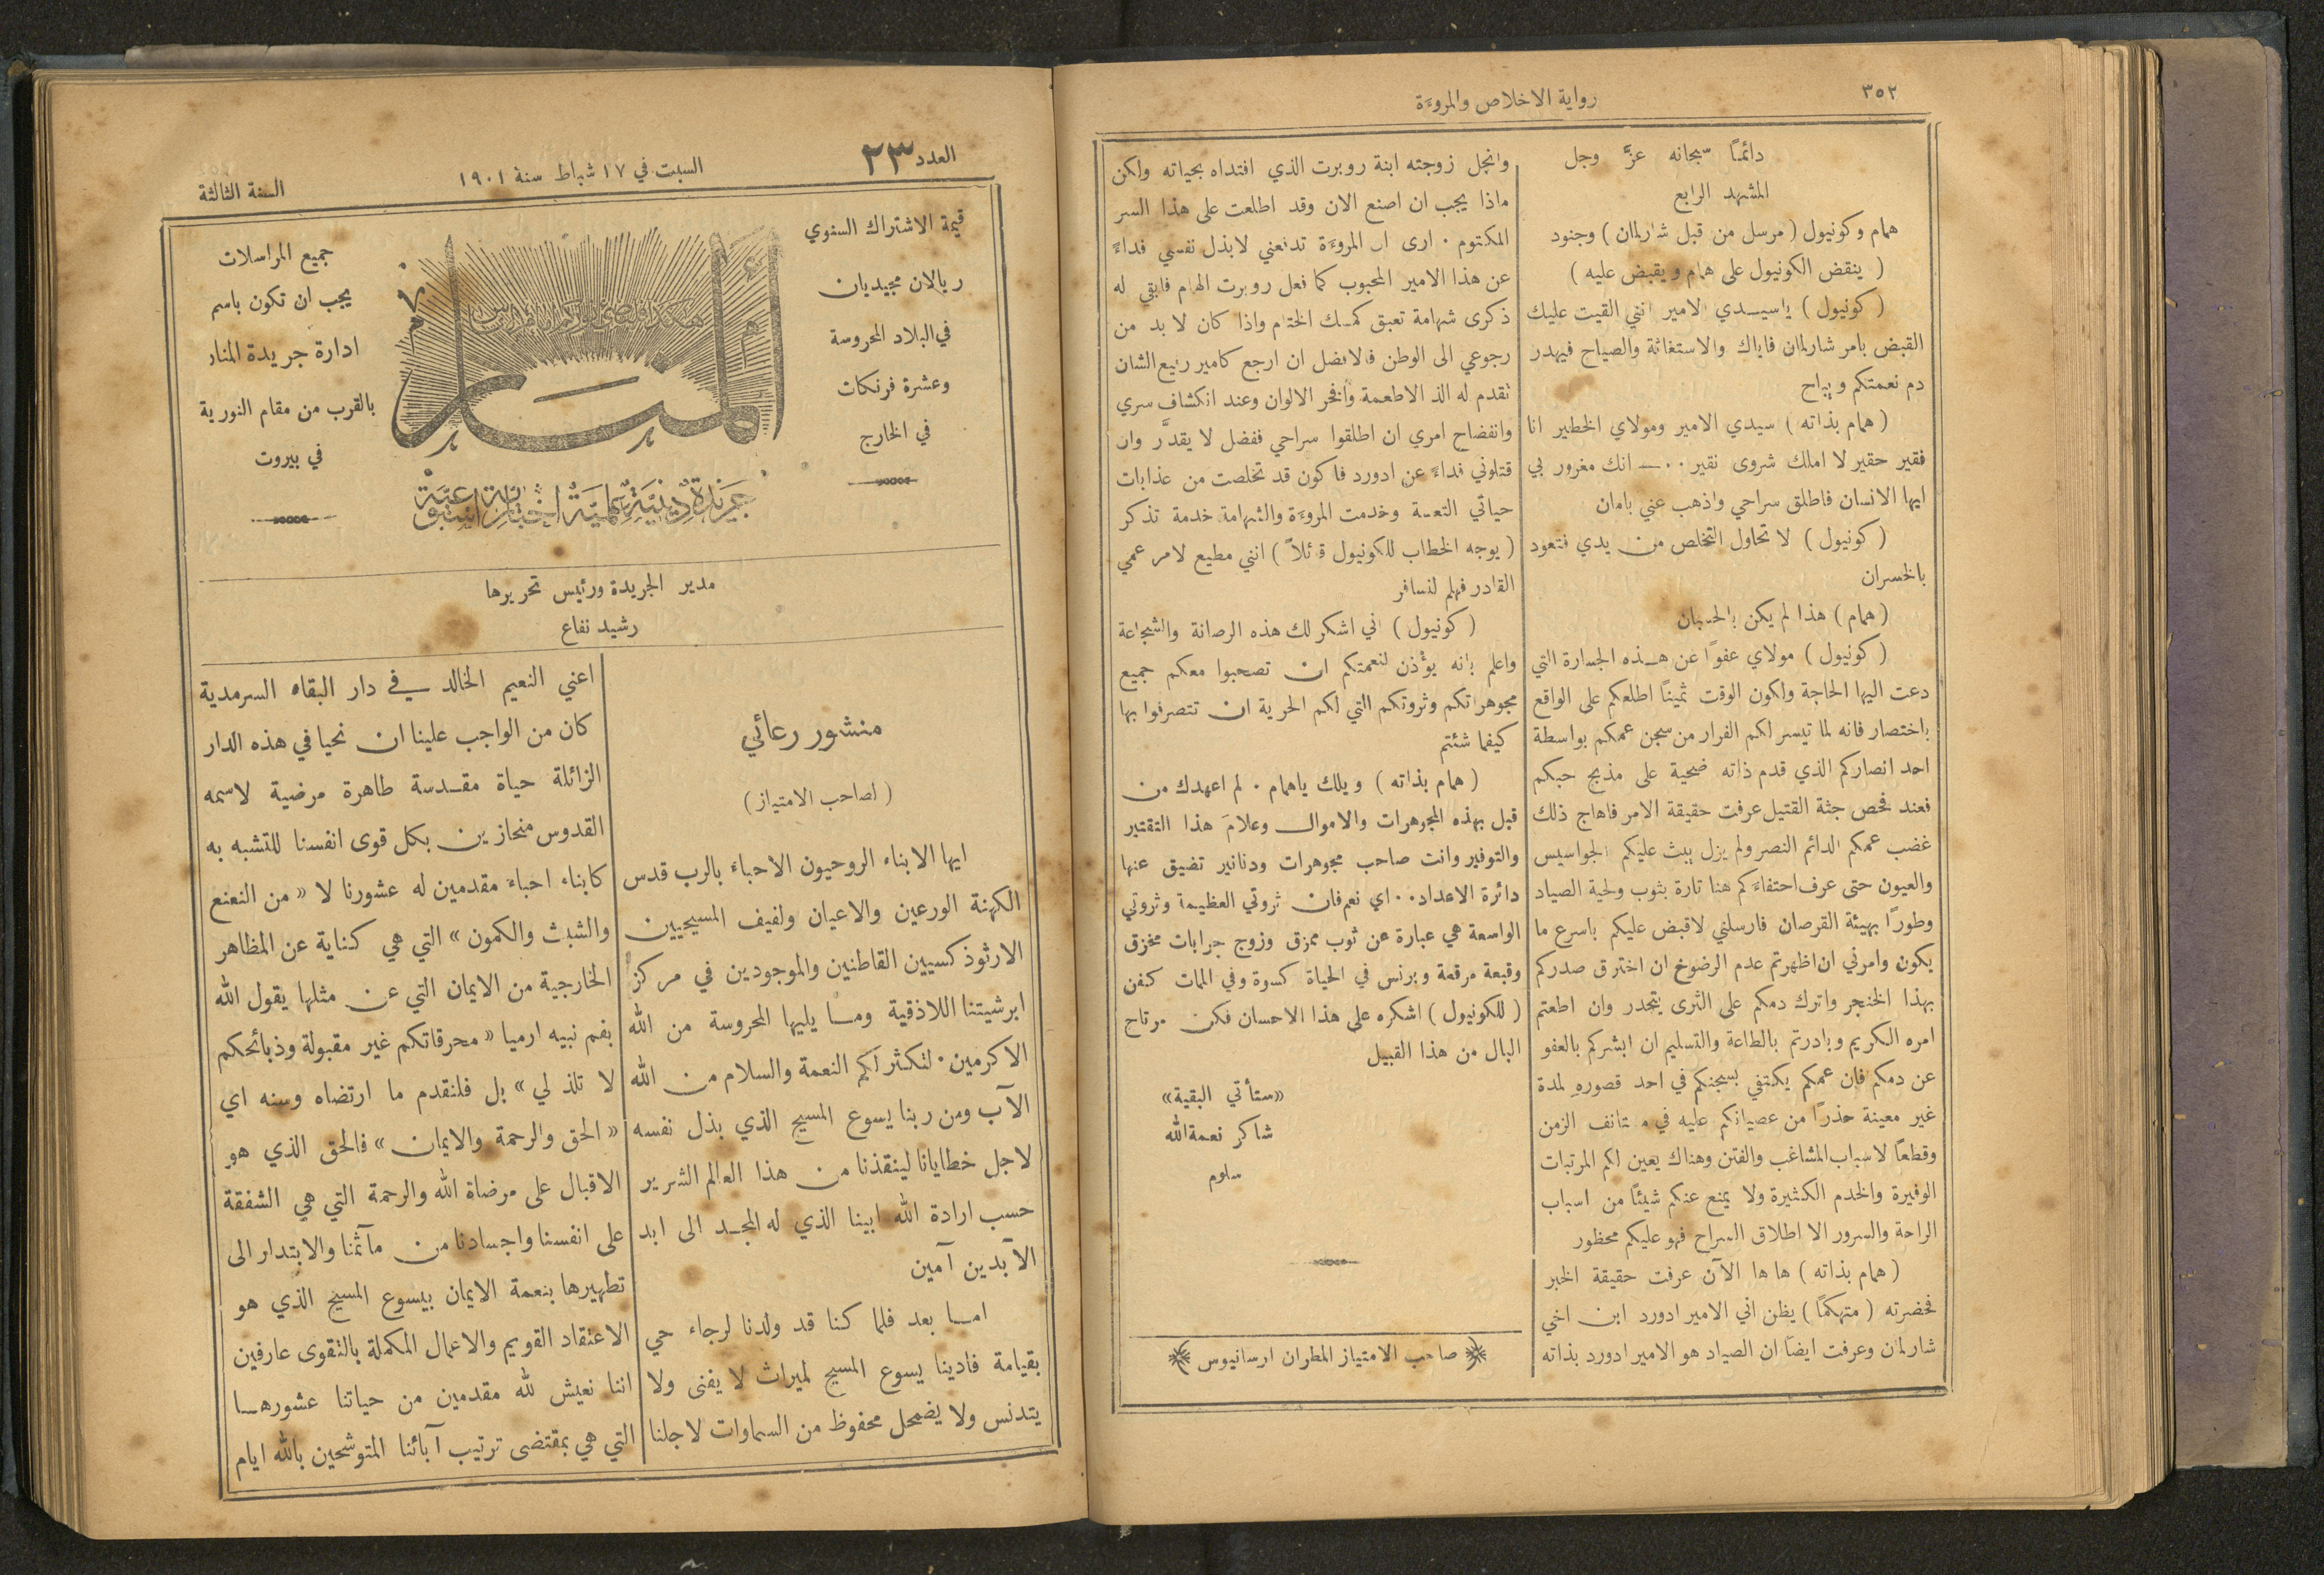 ٣٥٢
رواية الاخلاص والمروءة
دائمًا سبحانه عزَّ وجل
المشهد الرابع
همام وكونيول (مرسل من قبل شارلمان) وجنود
(ينقض الكونيول على همام ويقبض عليه)
(كونيول) ياسيدي الامير انني القيت عليك
القبض بامر شارلمان فاياك والاستغاثة والصياح فيهدر
دم نعمتكم ويباح
(همام بذاته) سيدي الامير ومولاي الخطير انا
فقير حقير لا املك شروى نقير ·· — انك مغرور بي
ايها الانسان فاطلق سراحي واذهب عني بامان
(كونيول) لا تحاول التخلص من يدي فتعود
بالخسران
(همام) هذا لم يكن بالحسبان
(كونيول) مولاي عفوًا عن هذه الجسارة التي
دعت اليها الحاجة ولكون الوقت ثمينًا اطلعكم على الواقع
باختصار فانه لما تيسر لكم الفرار من سجن عمكم بواسطة
احد انصاركم الذي قدم ذاته ضحية على مذبح حبكم
فعند فحص جثة القتيل عرفت حقيقة الامر فاهاج ذلك
غضب عمكم الدائم النصر ولم يزل يبث عليكم الجواسيس
والعيون حتى عرف احتفاءكم هنا تارة بثوب ولحية الصياد
وطورًا بهيئة القرصان فارسلني لاقبض عليكم باسرع ما
يكون وامرني ان اظهرتم عدم الرضوخ ان اخترق صدركم
بهذا الخنجر واترك دمكم على الثرى يتجدر وان اطعتم
امره الكريم وبادرتم بالطاعة والتسليم ان ابشركم بالعفو
عن دمكم فان عمكم يكتفي بسجنكم في احد قصورهِ لمدة
غير معينة حذرًا من عصيانكم عليه في مستانف الزمن
وقطعًا لاسباب المشاغب والفتن وهناك يعين لكم المرتبات
الوفيرة والخدم الكثيرة ولا يمنع عنكم شيئًا من اسباب
الراحة والسرور الا اطلاق السراح فهو عليكم محظور
(همام بذاته) ها ها الآن عرفت حقيقة الخبر
فحضرته (متهكمًا) يظن اني الامير ادورد ابن اخي
شارلمان وعرفت ايضًا ان الصياد هو الامير ادورد بذاته
وانجل زوجته ابنة روبرت الذي افتداه بحياته ولكن
ماذا يجب ان اصنع الان وقد اطلعت على هذا السر
المكتوم · ارى ان المروءة تدفعني لابذل نفسي فداءً
عن هذا الامير المحبوب كما فعل روبرت الهام فابقي له
ذكرى شهامة تعبق كمسك الختام واذا كان لا بد من
رجوعي الى الوطن فالافضل ان ارجع كامير رفيع الشان
تقدم له الذ الاطعمة وافخر الالوان وعند انكشاف سري
وانفضاح امري ان اطلقوا سراحي ففضل لا يقدَّر وان
قتلوني فداءً عن ادورد فاكون قد تخلصت من عذابات
حياتي التعسة وخدمت المروءة والشهامة خدمة تذكر
(يوجه الخطاب للكونيول قائلاً) انني مطيع لامر عمي
القادر فهلم لنسافر
(كونيول) اني اشكر لك هذه الرصانة والشجاعة
واعلم بانه يؤذن لنعمتكم ان تصحبوا معكم جميع
مجوهراتكم وثروتكم التي لكم الحرية ان تتصرفوا بها
كيفما شئتم
(همام بذاته) ويلك ياهمام · لم اعهدك من
قبل بهذه المجوهرات والاموال وعلامَ هذا التقتير
والتوفير وانت صاحب مجوهرات ودنانير تضيق عنها
دائرة الاعداد ·· اي نعم فان ثروتي العظيمة وثروتي
الواسعة هي عبارة عن ثوب ممزق وزوج جرابات مخزق
وقبعة مرقعة وبرنس في الحياة كسوة وفي الممات كفن
(للكونيول) اشكره على هذا الاحسان فكن مرتاح
البال من هذا القبيل
«ستأتي البقية»
شاكر نعمةالله
سلوم
صاحب الامتياز المطران ارسانيوس
العدد ٢٣
السبت في ١٧ شباط سنة ١٩٠١
السنة الثالثة
قيمة الاشتراك السنوي
ريالان مجيديان
في البلاد المحروسة
وعشرة فرنكات
في الخارج
هكذا فليضئ نوركم قدام الناس
المنار
جريدة دينية علمية اخبارية اسبوعية
جميع المراسلات
يجب ان تكون باسم
ادارة جريدة المنار
بالقرب من مقام النورية
في بيروت
مدير الجريدة ورئيس تحريرها
رشيد نفاع
منشور رعائي
(لصاحب الامتياز)
ايها الابناء الروحيون الاحباء بالرب قدس
الكهنة الورعين والاعيان ولفيف المسيحيين
الارثوذكسيين القاطنين والموجودين في مركز
ابرشيتنا اللاذقية وما يليها المحروسة من الله
الاكرمين · لتكثر لكم النعمة والسلام من الله
الآب ومن ربنا يسوع المسيح الذي بذل نفسه
لاجل خطايانا لينقذنا من هذا العالم الشرير
حسب ارادة الله ابينا الذي له المجد الى ابد
الآبدين آمين
اما بعد فلما كنا قد ولدنا لرجاء حي
بقيامة فادينا يسوع المسيح لميراث لا يفنى ولا
يتدنس ولا يضمحل محفوظ من السماوات لاجلنا
اعني النعيم الخالد في دار البقاء السرمدية
كان من الواجب علينا ان نحيا في هذه الدار
الزائلة حياة مقدسة طاهرة مرضية لاسمه
القدوس منحازين بكل قوى انفسنا للتشبه به
كابناء احباء مقدمين له عشورنا لا «من النعنع
والشبث والكمون» التي هي كناية عن المظاهر
الخارجية من الايمان التي عن مثلها يقول الله
بفم نبيه ارميا «محرقاتكم غير مقبولة وذبائحكم
لا تلذ لي» بل فلنقدم ما ارتضاه وسنه اي
«الحق والرحمة والايمان» فالحق الذي هو
الاقبال على مرضاة الله والرحمة التي هي الشفقة
على انفسنا واجسادنا من مآثمنا والابتدار الى
تطهيرها بنعمة الايمان بيسوع المسيح الذي هو
الاعتقاد القويم والاعمال المكملة بالتقوى عارفين
اننا نعيش لله مقدمين من حياتنا عشورها
التي هي بمقتضى ترتيب آبائنا المتوشحين بالله ايام